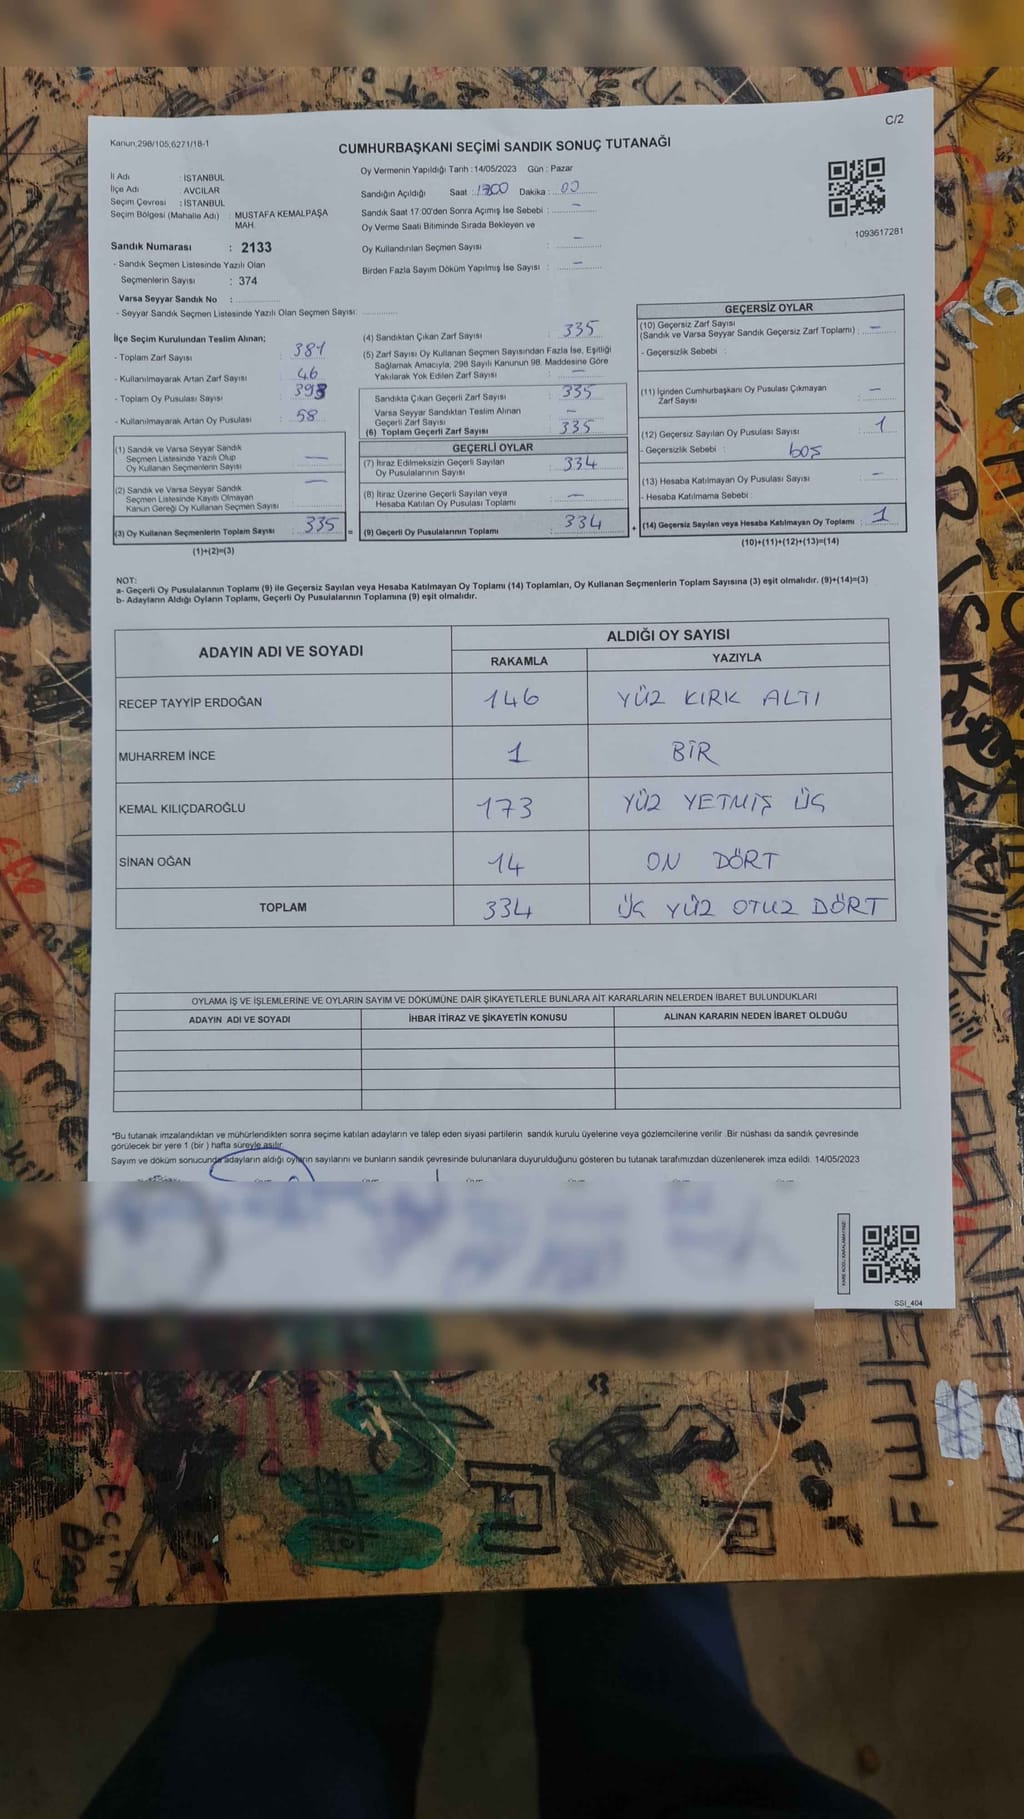 C/2
Kanun;298/105,6271/18-1
CUMHURBAŞKANI SEÇİMİ SANDIK SONUÇ TUTANAĞI
İl Adı : İSTANBUL
İlçe Adı : AVCILAR
Seçim Çevresi : İSTANBUL
Seçim Bölgesi (Mahalle Adı) : MUSTAFA KEMALPAŞA
MAH.
Sandık Numarası : 2133
- Sandık Seçmen Listesinde Yazılı Olan
Seçmenlerin Sayısı : 374
Varsa Seyyar Sandık No :
- Seyyar Sandık Seçmen Listesinde Yazılı Olan Seçmen Sayısı:
Oy Vermenin Yapıldığı Tarih : 14/05/2023 Gün : Pazar
Sandığın Açıldığı Saat : 1700 Dakika : 00
Sandık Saat 17:00'den Sonra Açımış İse Sebebi : -
Oy Verme Saati Bitiminde Sırada Bekleyen ve
Oy Kullandırılan Seçmen Sayısı : -
Birden Fazla Sayım Döküm Yapılmış İse Sayısı : -
1093617281
İlçe Seçim Kurulundan Teslim Alınan;
- Toplam Zarf Sayısı : 381
- Kullanılmayarak Artan Zarf Sayısı : 46
- Toplam Oy Pusulası Sayısı : 393
- Kullanılmayarak Artan Oy Pusulası : 58
(1) Sandık ve Varsa Seyyar Sandık
Seçmen Listesinde Yazılı Olup
Oy Kullanan Seçmenlerin Sayısı : -
(2) Sandık ve Varsa Seyyar Sandık
Seçmen Listesinde Kayıtlı Olmayan
Kanun Gereği Oy Kullanan Seçmen Sayısı : -
(3) Oy Kullanan Seçmenlerin Toplam Sayısı : 335 =
(1)+(2)=(3)
(4) Sandıktan Çıkan Zarf Sayısı : 335
(5) Zarf Sayısı Oy Kullanan Seçmen Sayısından Fazla İse, Eşitliği
Sağlamak Amacıyla, 298 Sayılı Kanunun 98. Maddesine Göre
Yakılarak Yok Edilen Zarf Sayısı : -
Sandıkta Çıkan Geçerli Zarf Sayısı : 335
Varsa Seyyar Sandıktan Teslim Alınan
Geçerli Zarf Sayısı : -
(6) Toplam Geçerli Zarf Sayısı : 335
GEÇERLİ OYLAR
(7) İtiraz Edilmeksizin Geçerli Sayılan
Oy Pusulalarının Sayısı : 334
(8) İtiraz Üzerine Geçerli Sayılan veya
Hesaba Katılan Oy Pusulası Toplamı : -
(9) Geçerli Oy Pusulalarının Toplamı : 334 +
GEÇERSİZ OYLAR
(10) Geçersiz Zarf Sayısı
(Sandık ve Varsa Seyyar Sandık Geçersiz Zarf Toplamı) : -
- Geçersizlik Sebebi :
(11) İçinden Cumhurbaşkanı Oy Pusulası Çıkmayan
Zarf Sayısı : -
(12) Geçersiz Sayılan Oy Pusulası Sayısı : 1
- Geçersizlik Sebebi : boş
(13) Hesaba Katılmayan Oy Pusulası Sayısı : -
- Hesaba Katılmama Sebebi :
(14) Geçersiz Sayılan veya Hesaba Katılmayan Oy Toplamı : 1
(10)+(11)+(12)+(13)=(14)
NOT:
a- Geçerli Oy Pusulalarının Toplamı (9) ile Geçersiz Sayılan veya Hesaba Katılmayan Oy Toplamı (14) Toplamları, Oy Kullanan Seçmenlerin Toplam Sayısına (3) eşit olmalıdır. (9)+(14)=(3)
b- Adayların Aldığı Oyların Toplamı, Geçerli Oy Pusulalarının Toplamına (9) eşit olmalıdır.
ADAYIN ADI VE SOYADI
ALDIĞI OY SAYISI
RAKAMLA YAZIYLA
RECEP TAYYİP ERDOĞAN 146 YÜZ KIRK ALTI
MUHARREM İNCE 1 BİR
KEMAL KILIÇDAROĞLU 173 YÜZ YETMİŞ ÜÇ
SİNAN OĞAN 14 ON DÖRT
TOPLAM 334 ÜÇ YÜZ OTUZ DÖRT
OYLAMA İŞ VE İŞLEMLERİNE VE OYLARIN SAYIM VE DÖKÜMÜNE DAİR ŞİKAYETLERLE BUNLARA AİT KARARLARIN NELERDEN İBARET BULUNDUKLARI
ADAYIN ADI VE SOYADI İHBAR İTİRAZ VE ŞİKAYETİN KONUSU ALINAN KARARIN NEDEN İBARET OLDUĞU
*Bu tutanak imzalandıktan ve mühürlendikten sonra seçime katılan adayların ve talep eden siyasi partilerin sandık kurulu üyelerine veya gözlemcilerine verilir. Bir nüshası da sandık çevresinde
görülecek bir yere 1 (bir ) hafta süreyle asılır.
Sayım ve döküm sonucunda adayların aldığı oyların sayılarını ve bunların sandık çevresinde bulunanlara duyurulduğunu gösteren bu tutanak tarafımızdan düzenlenerek imza edildi. 14/05/2023
SSI_404